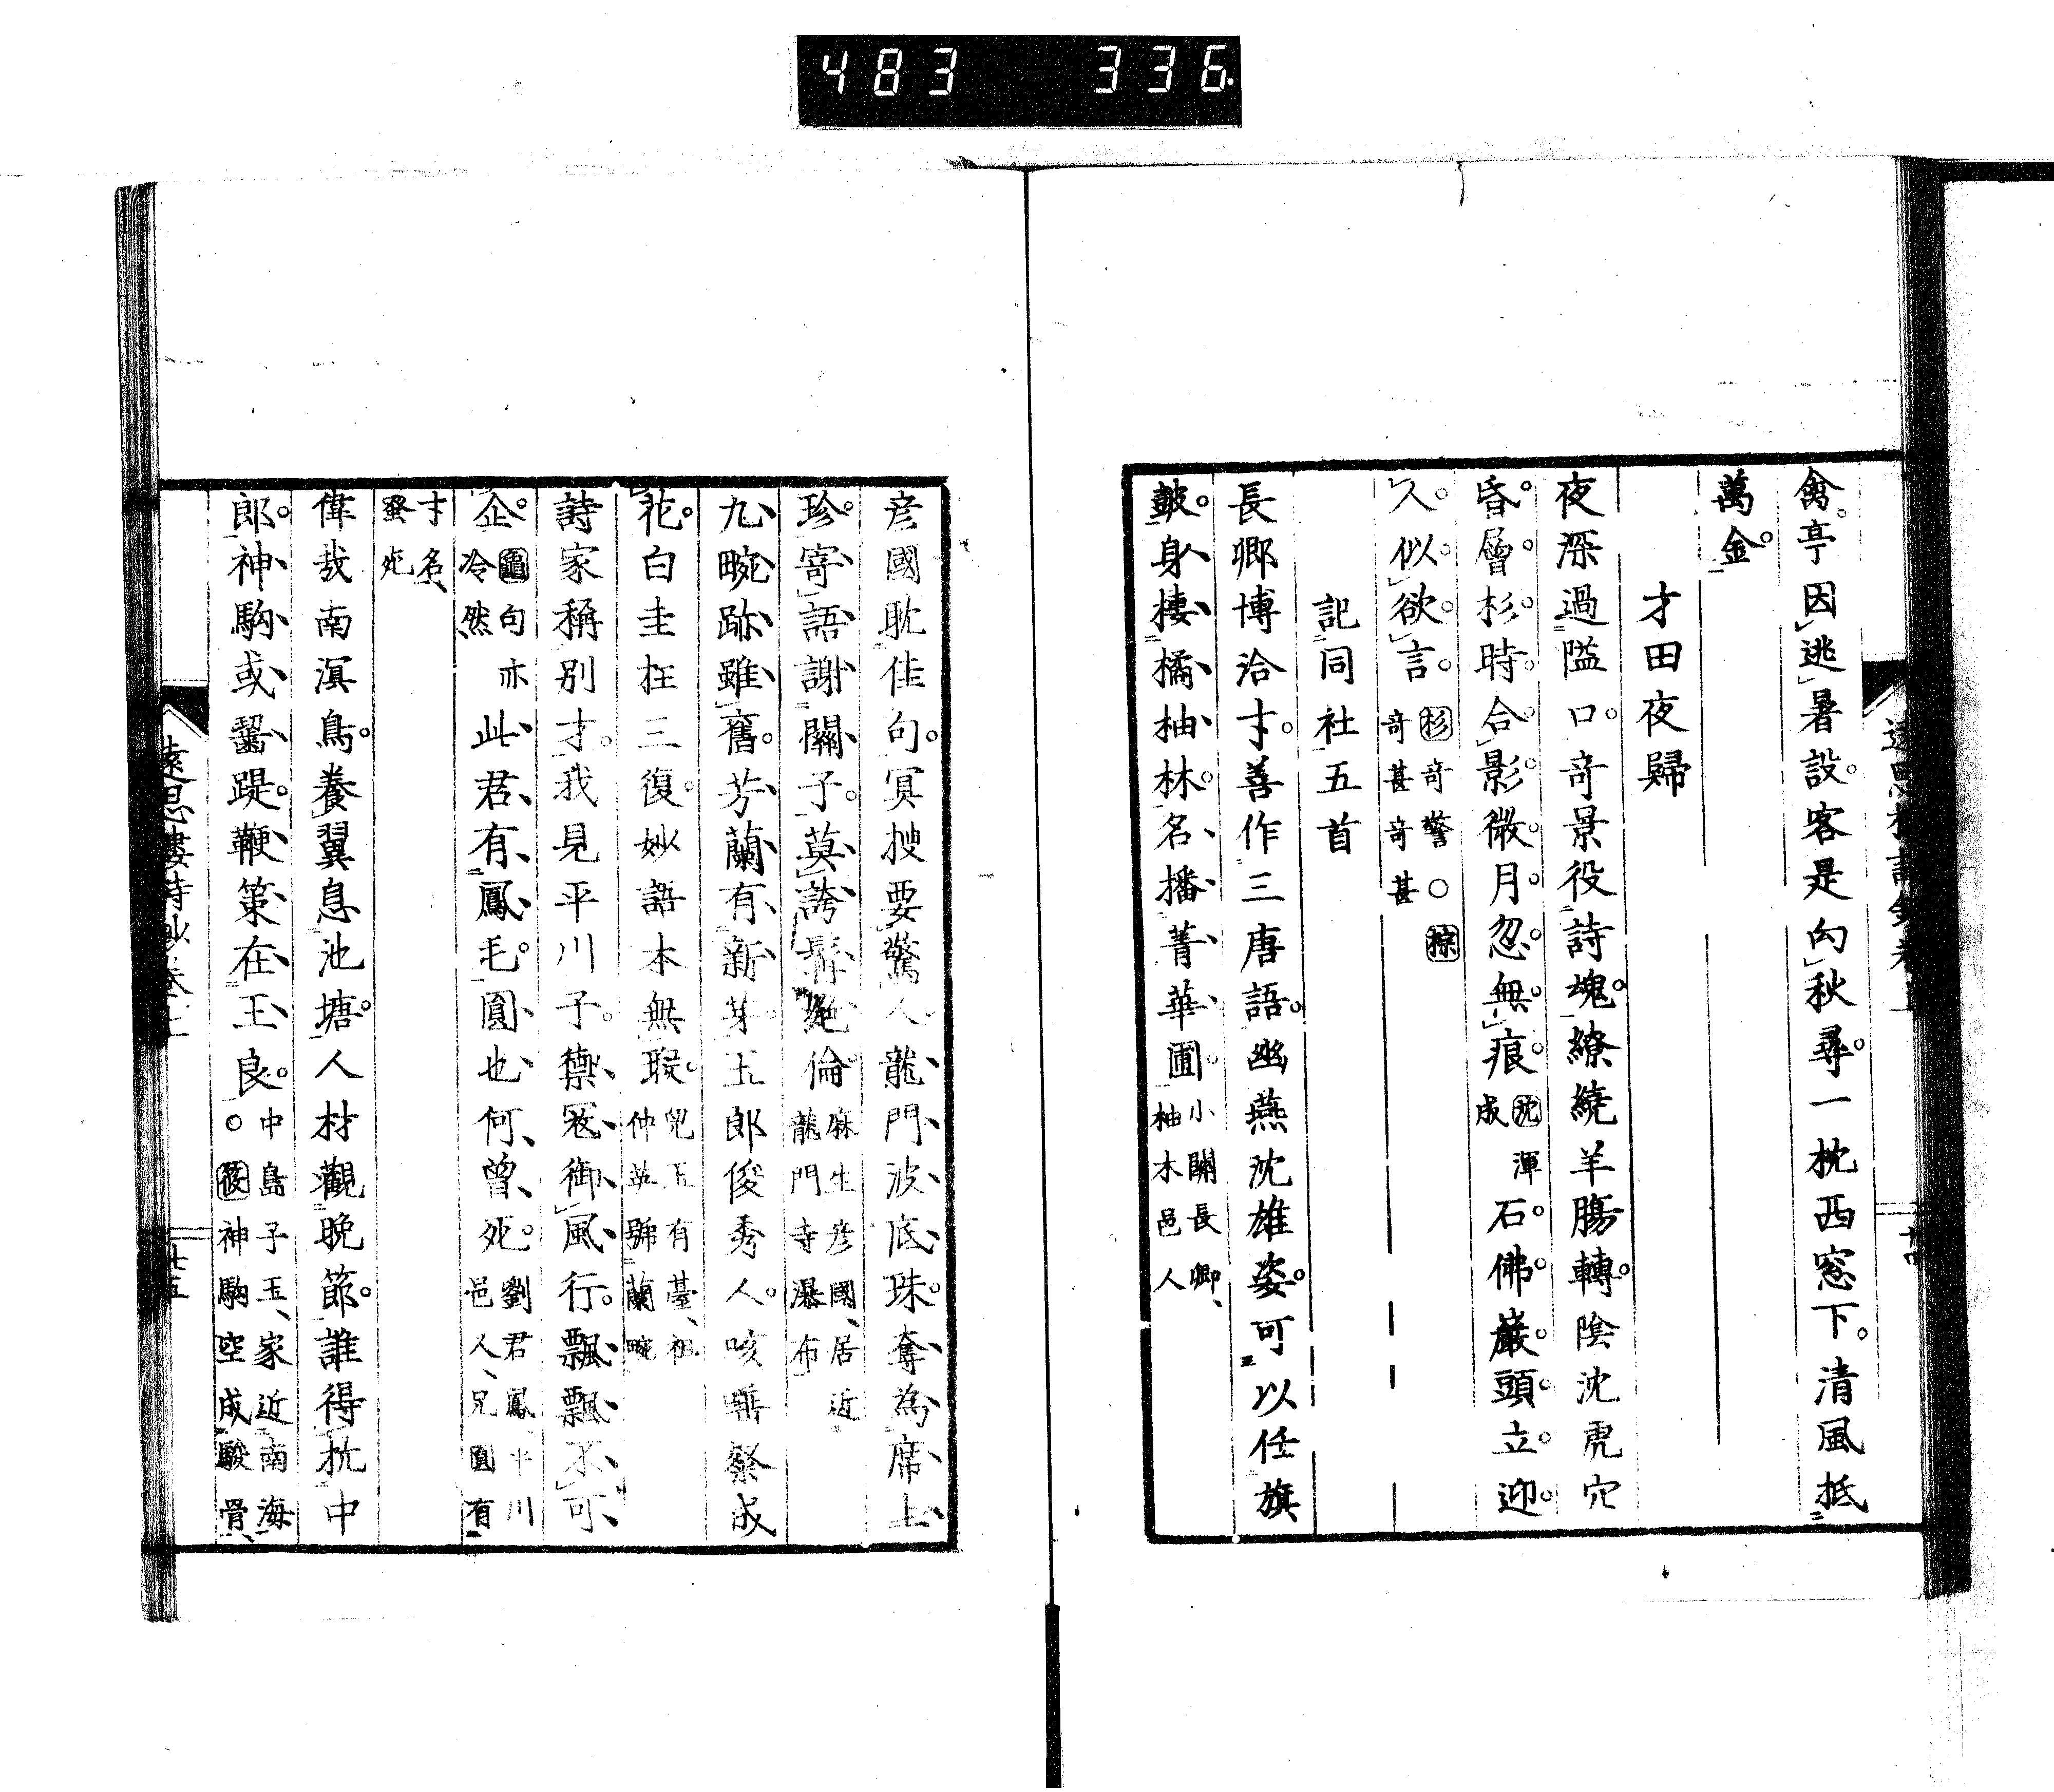 483 336
禽亭因逃暑設客是向秋尋一枕西窓下清風抵
萬金
才田夜歸
夜深過隘口奇景役詩魂繚繞羊腸轉陰沈虎穴
昏層杉時合影微月忽無痕沈渾成石佛巖頭立迎
人似欲言杉奇警○猔奇甚奇甚
記同社五首
長卿博洽才善作三唐語幽燕沈雄姿可以任旗
皷身棲橘柚林名播菁華圃小關長卿、柚木邑人
彦國耽佳句冥捜要驚人龍門波底珠奪為席上
珍寄語謝關子莫誇髯絶倫麻生彦國、居近龍門寺瀑布
九畹跡雖舊芳蘭有新芽玉郎俊秀人咳唾粲成
花白圭在三復妙語本無瑕兒玉有臺、祖仲英號蘭畹
詩家稱別才我見平川子禦冦御風行飄飄不可
企句亦冷然此君有鳳毛圓也何曾死劉君鳳平川邑人、兄圓有
才名、蚤死
偉哉南溟鳥養翼息池塘人材觀晩節誰得抗中
郎神駒或齧踶鞭策在王良中島子玉、家近南海○筱神駒空成駿骨、
遠思樓詩鈔卷上
十四
遠思樓詩鈔卷上
十五